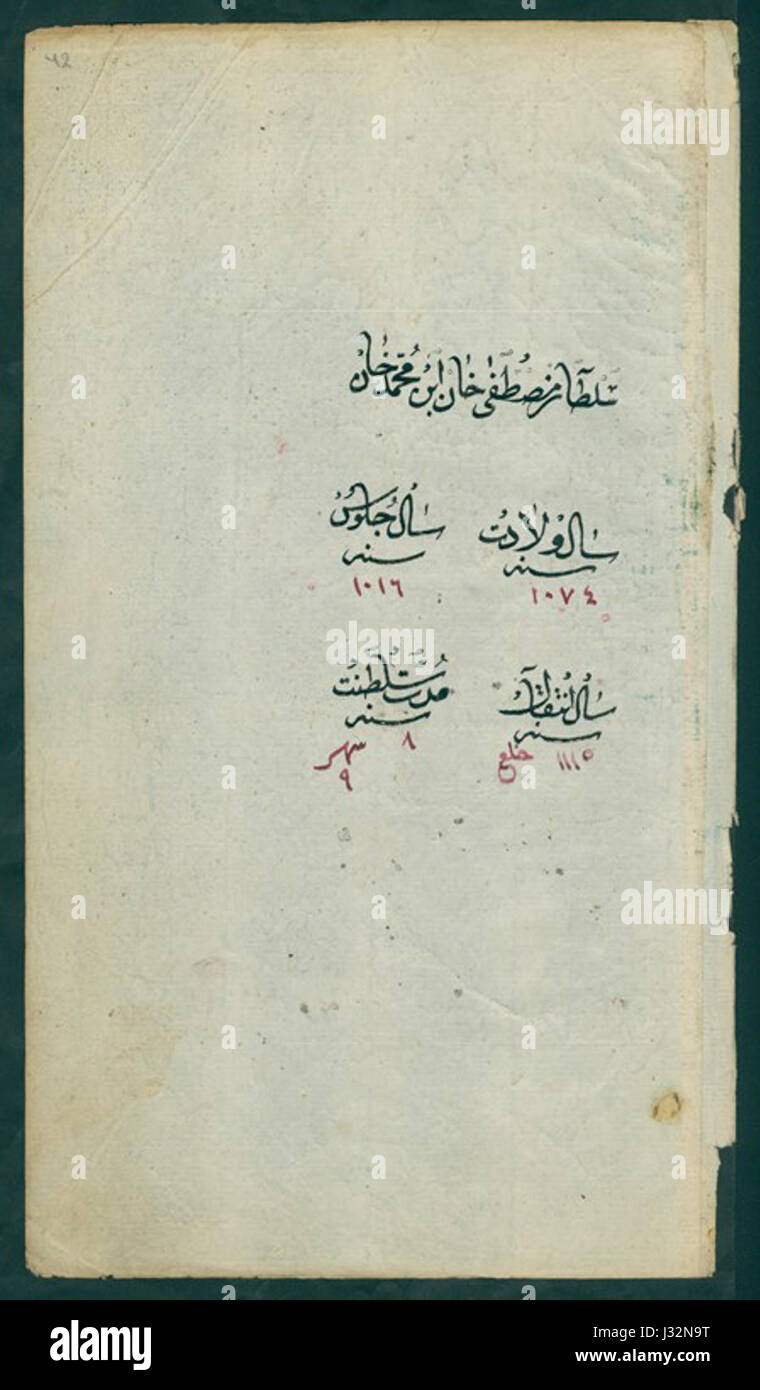 ٤٢
سلطان مصطفى خان ابن محمد خان
سال ولادت
سنه
١٠٧٤
سال جلوس
سنه
١٠١٦
سال انتقال
سنه
١١١٥ خلع
مدت سلطنت
سنه
٨ شهر
٩
a alamy
J32N9T
www.alamy.com